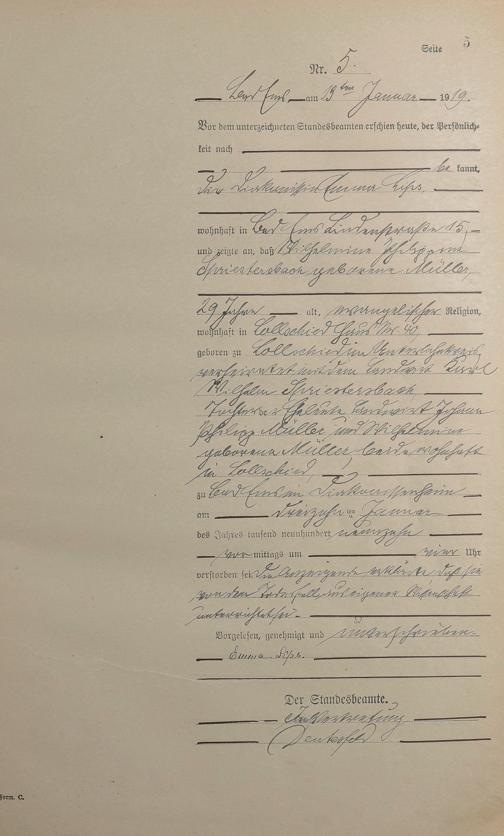 Seite 5
Nr. 5.
Bad Ems am 13ten Januar 1919.
Vor dem unterzeichneten Standesbeamten erschien heute, der Persönlich-
keit nach
be kannt,
die Diakonissin Emma
wohnhaft in Bad Ems Lindenstraße 15,
und zeigte an, daß Wilhelmine Philippine
Spriestersbach geborene Müller,
29 Jahre alt, evangelischer Religion,
wohnhaft in Lollschied Haus Nr 40,
geboren zu Lollschied im Unterlahnkreis,
verheiratet mit dem Landwirt Karl
Wilhelm Spriestersbach
Tochter der Eheleute Landwirt Johann
Philipp Müller und Wilhelmine
geborene Müller, beide wohnhaft
in Lollschied,
zu Bad Ems im Diakonissenheim
am dreizehnten Januar
des Jahres tausend neunhundert neunzehn
vor mittags um vier Uhr
verstorben sei. Die Anzeigende erklärte, daß sie
von dem Todesfalle aus eigener Wissenschaft
unterrichtet sei.
Vorgelesen, genehmigt und unterschrieben.
Emma
Der Standesbeamte.
In Vertretung
Form. C.